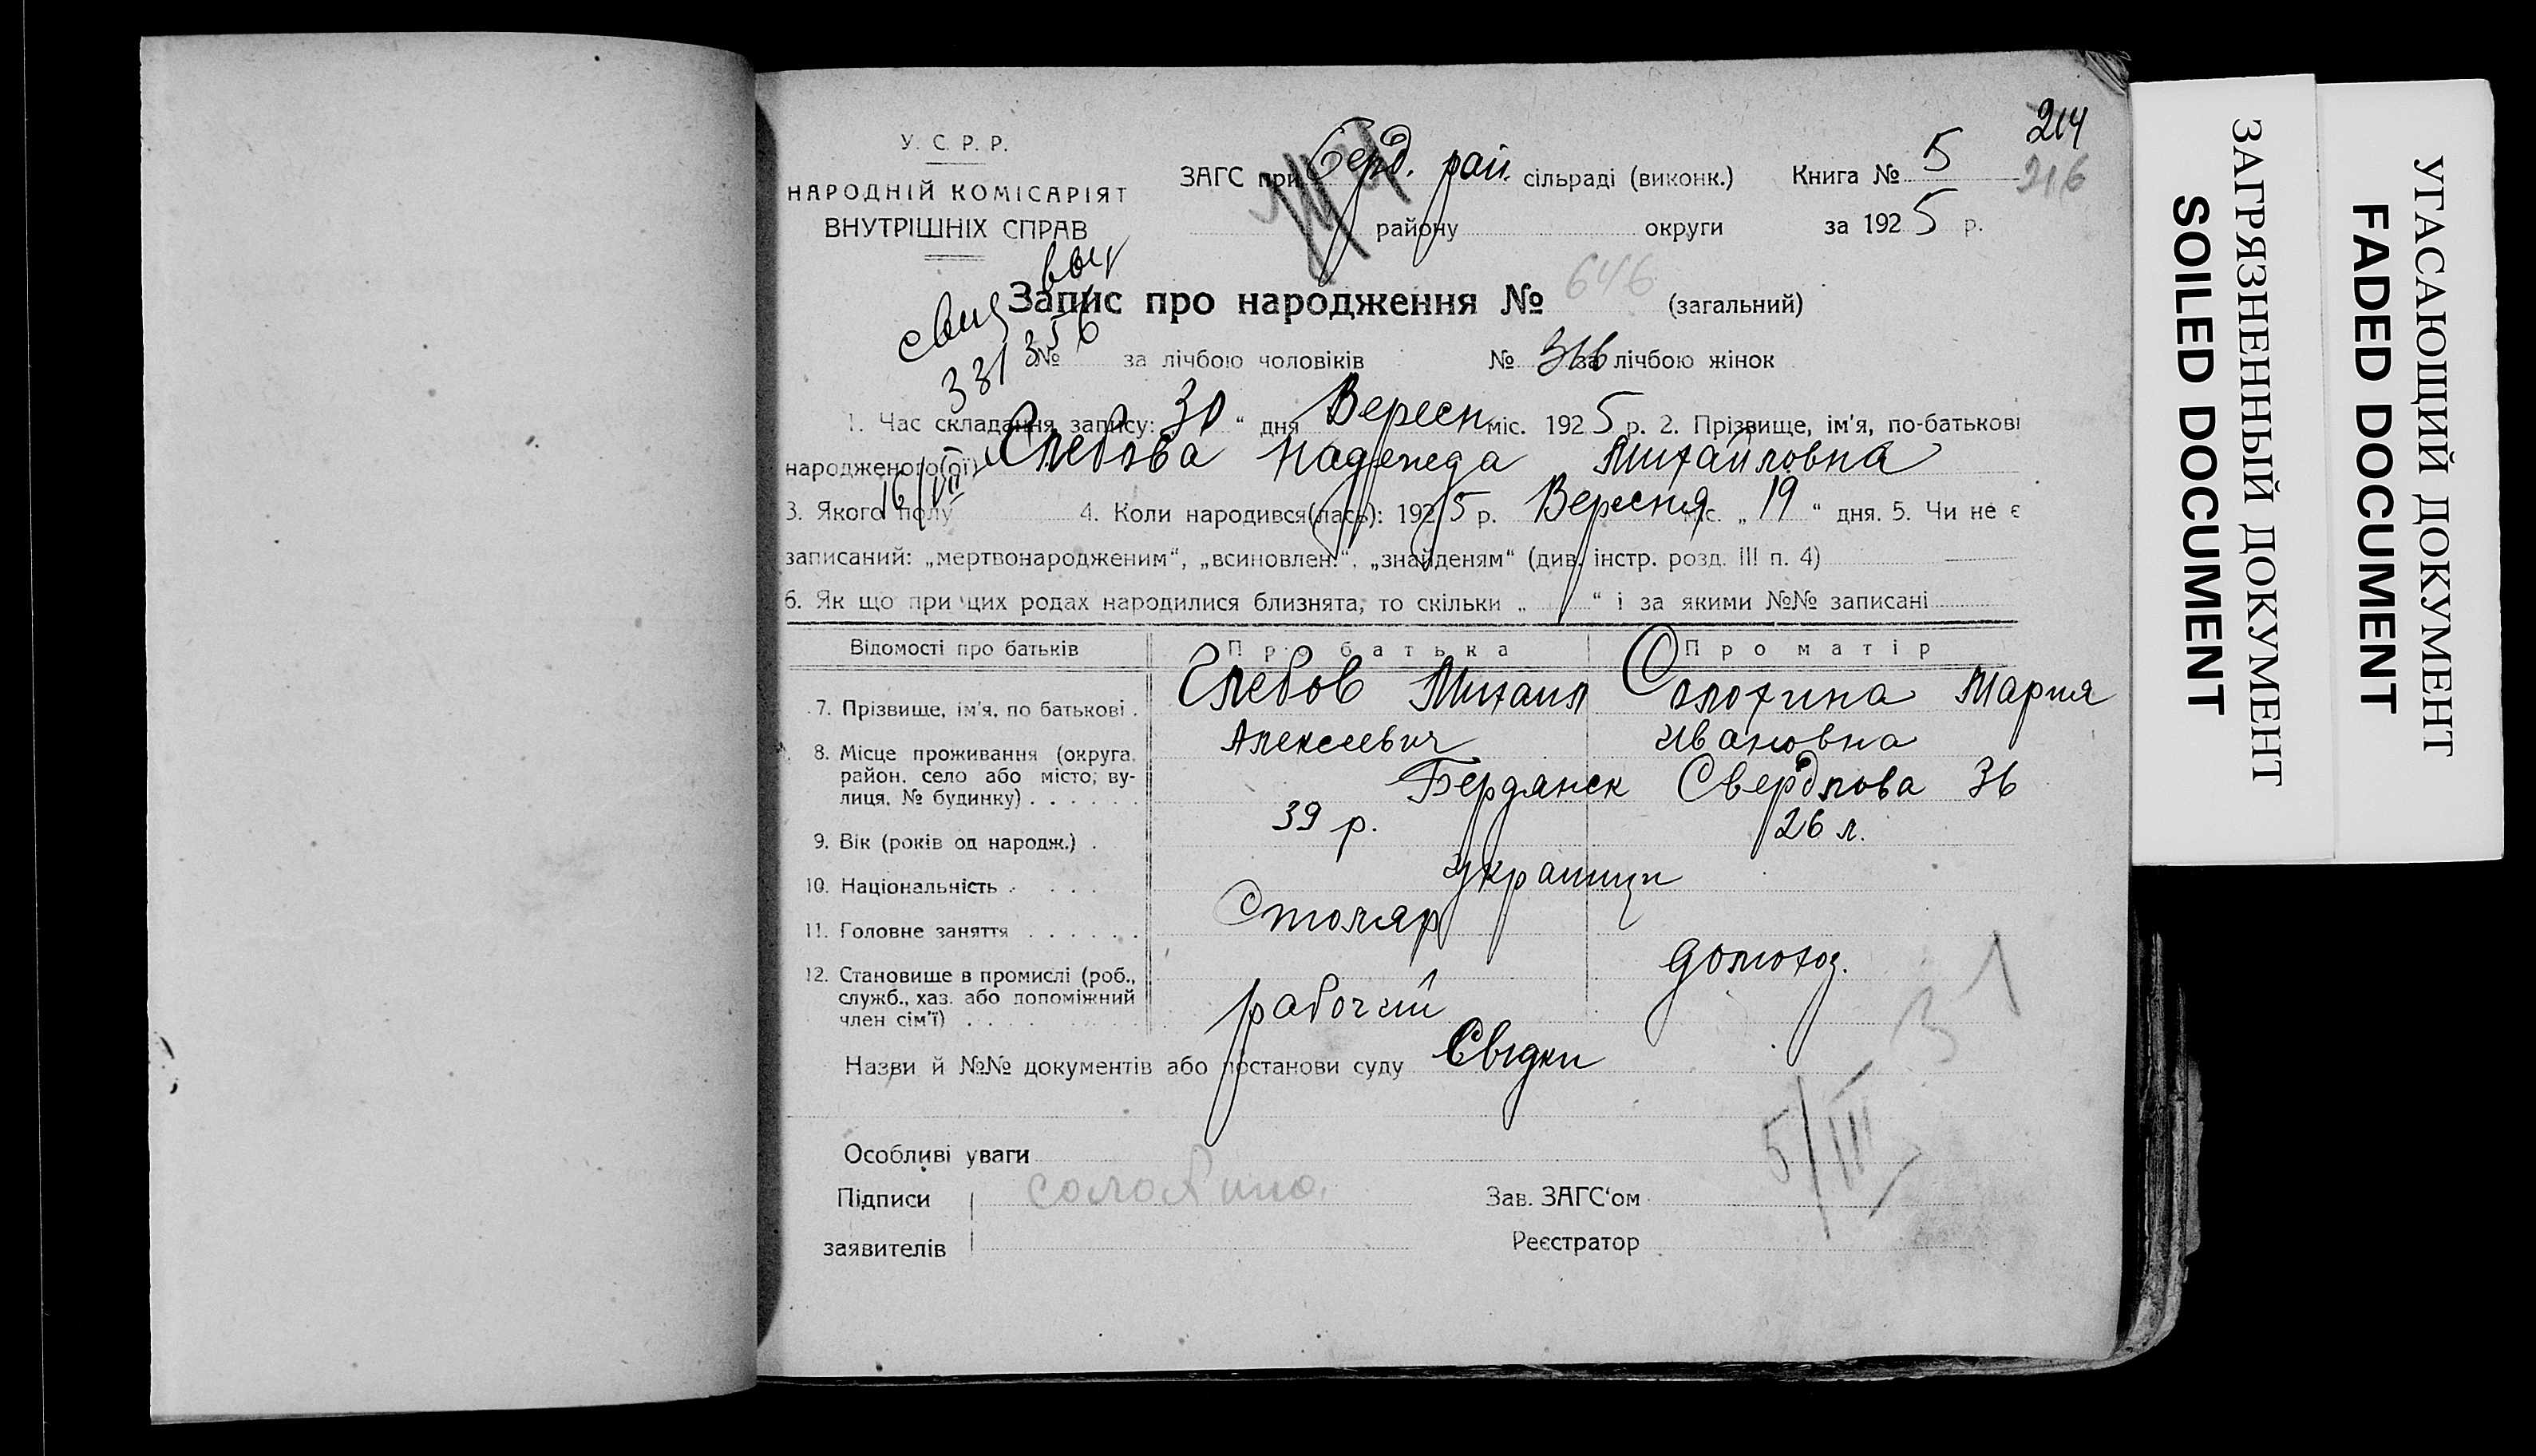 214
216
У. С. Р. Р.
НАРОДНІЙ КОМІСАРІЯТ
ВНУТРІШНІХ СПРАВ
ЗАГС при Берд. рай. сільраді (виконк.) Книга № 5
району округи за 1925 р.
Запис про народження № 646 (загальний)
№ за лічбою чоловіків № 316 за лічбою жінок
1. Час складання запису: 30 " дня Вересн міс. 1925 р. 2. Прізвище, ім'я, по-батькові
народженого(ої) Глебова Надежда Михайловна
3. Якого полу 4. Коли народився(лась): 1925 р. Вересня міс. „ 19 " дня. 5. Чи не є
записаний: „мертвонародженим", „всиновлен.", „знайденям" (див. інстр. розд. III п. 4)
6. Як що при цих родах народилися близнята, то скільки „ " і за якими №№ записані
Відомості про батьків Про батька Про матір
7. Прізвище, ім'я, по батькові . Глебов Михаил Алексеевич Солохина Мария Ивановна
8. Місце проживання (округа,
район, село або місто, ву-
лиця, № будинку) . . . . . . Бердянск Свердлова 36
9. Вік (років од народж.) . 39 р. 26 л.
10. Національність . . . . . украинци
11. Головне заняття . . . . . . Столяр
12. Становище в промислі (роб.,
служб., хаз. або допоміжний
член сім'ї) . . . . рабочий домохоз.
Назви й №№ документів або постанови суду Свідки
Особливі уваги
5/III
Підписи
заявителів
Зав. ЗАГС'ом
Реєстратор
ЗАГРЯЗНЕННЫЙ ДОКУМЕНТ
SOILED DOCUMENT
УГАСАЮЩИЙ ДОКУМЕНТ
FADED DOCUMENT